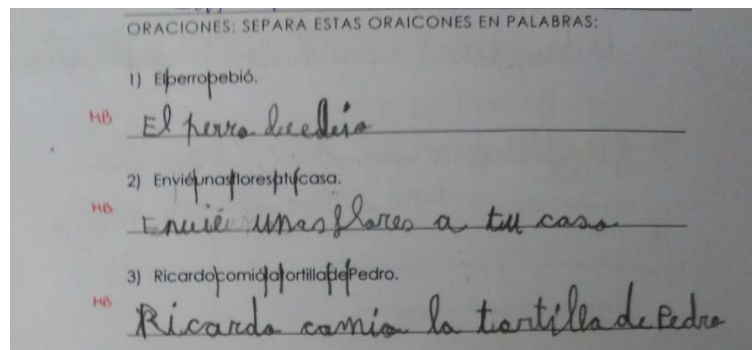 ORACIONES: SEPARA ESTAS ORAICONES EN PALABRAS:
1) Elperropebió.
MB El perro
2) Enviéunasfloresatucasa.
MB Envié unas flores a tu casa
3) RicardocomiólatortilladePedro.
MB Ricardo comio la tortilla de Pedro